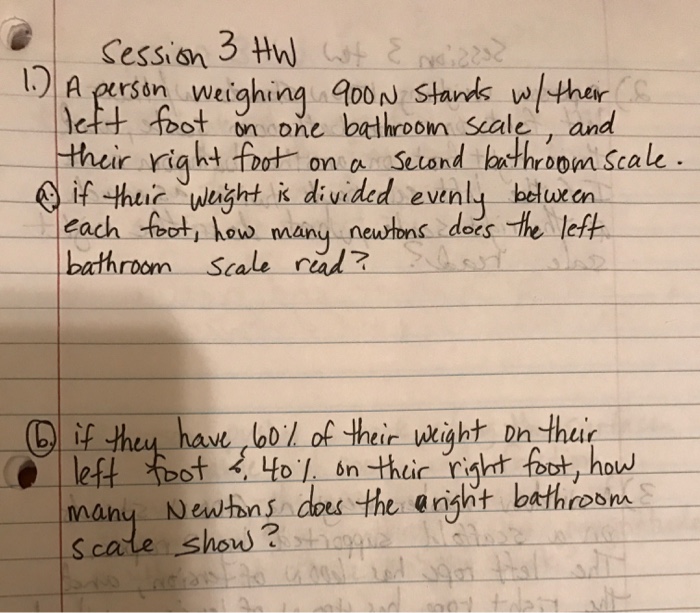 Session 3 HW
1.) A person weighing 900N Stands w/their
left foot on one bathroom scale, and
their right foot on a second bathroom scale.
a. if their weight is divided evenly between
each foot, how many newtons does the left
bathroom scale read?
b. if they have 60% of their weight on their
left foot & 40% on their right foot, how
many Newtons does the right bathroom
scale show?